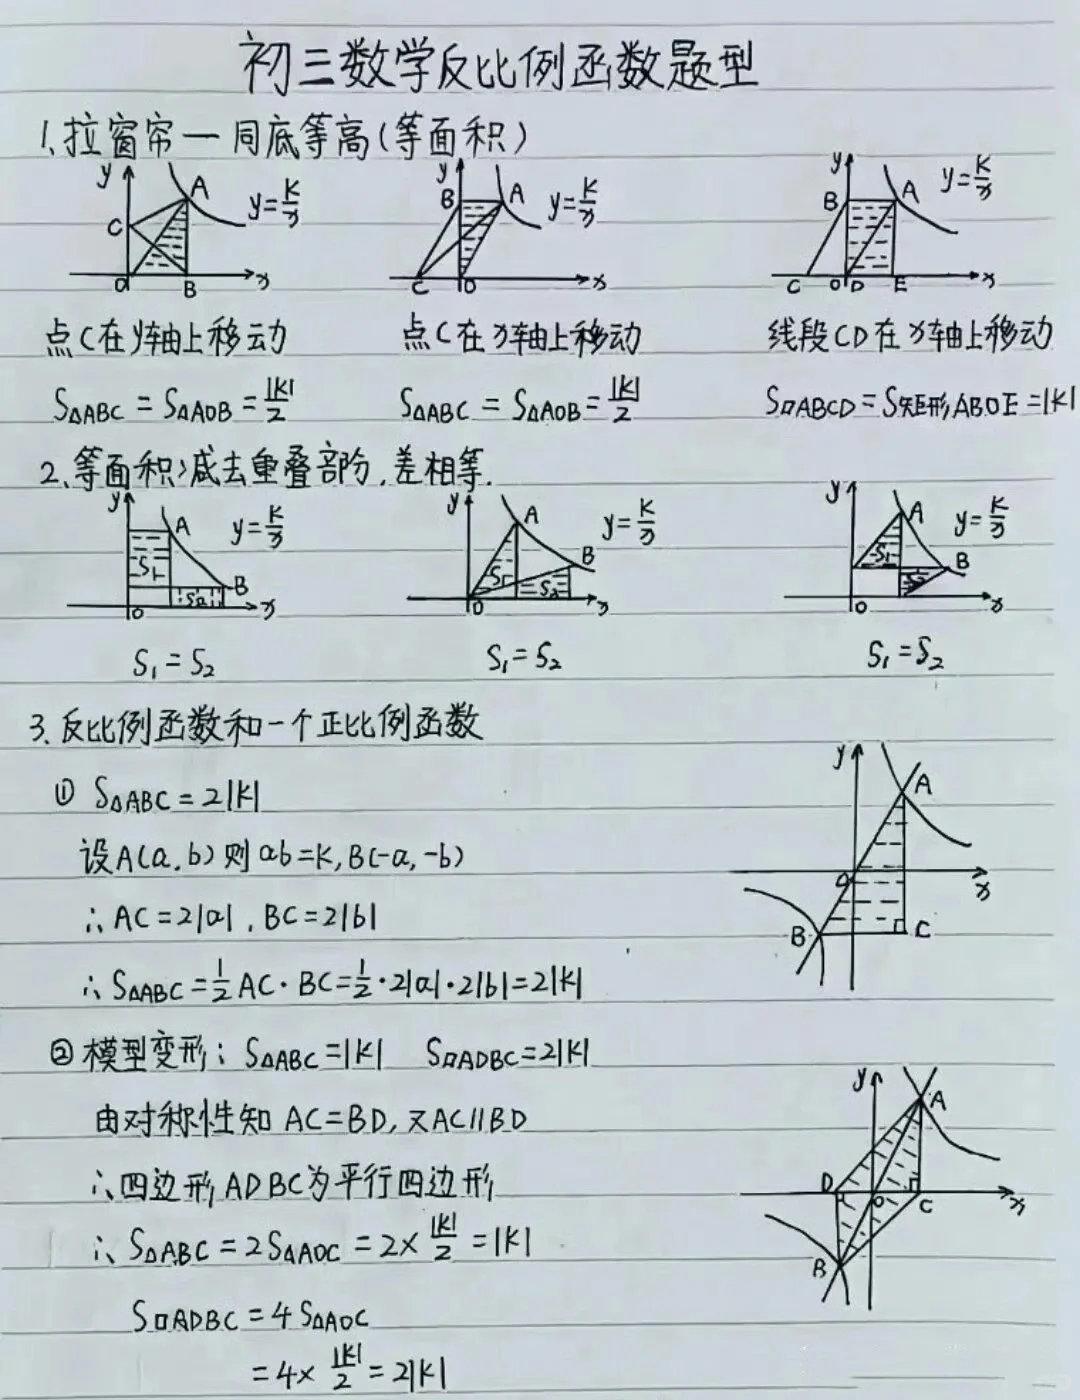 初三数学反比例函数题型
1、拉窗帘一同底等高(等面积)
y A C y=k/x O B x
y B A y=k/x C O x
y B A y=k/x C O D E x
点C在y轴上移动 点C在x轴上移动 线段CD在x轴上移动
S△ABC=S△AOB=|k|/2 S△ABC=S△AOB=|k|/2 S□ABCD=S矩形ABOE=|k|
2、等面积减去重叠部分,差相等.
y A y=k/x S₁ S₂ B O x
y A y=k/x B S₁ S₂ O x
y A y=k/x S₁ B S₂ O x
S₁=S₂ S₁=S₂ S₁=S₂
3、反比例函数和一个正比例函数
① S△ABC=2|k|
设A(a,b)则ab=k,B(-a,-b)
∴AC=2|a|,BC=2|b|
∴S△ABC=1/2AC·BC=1/2·2|a|·2|b|=2|k|
y A O x B C
②模型变形:S△ABC=|k| S□ADBC=2|k|
由对称性知AC=BD,又AC∥BD
∴四边形ADBC为平行四边形
∴S△ABC=2S△AOC=2×|k|/2=|k|
S□ADBC=4S△AOC
=4×|k|/2=2|k|
y A D O C x B